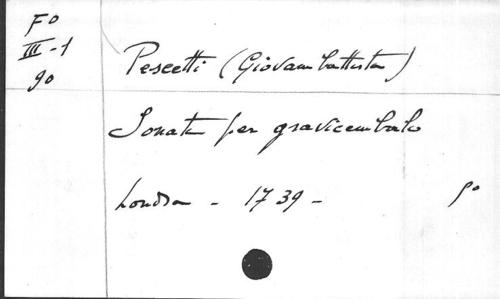 F°
III-1
90
Pescetti (Giovambattista)
Sonate per gravicembalo
Londra - 1739 -